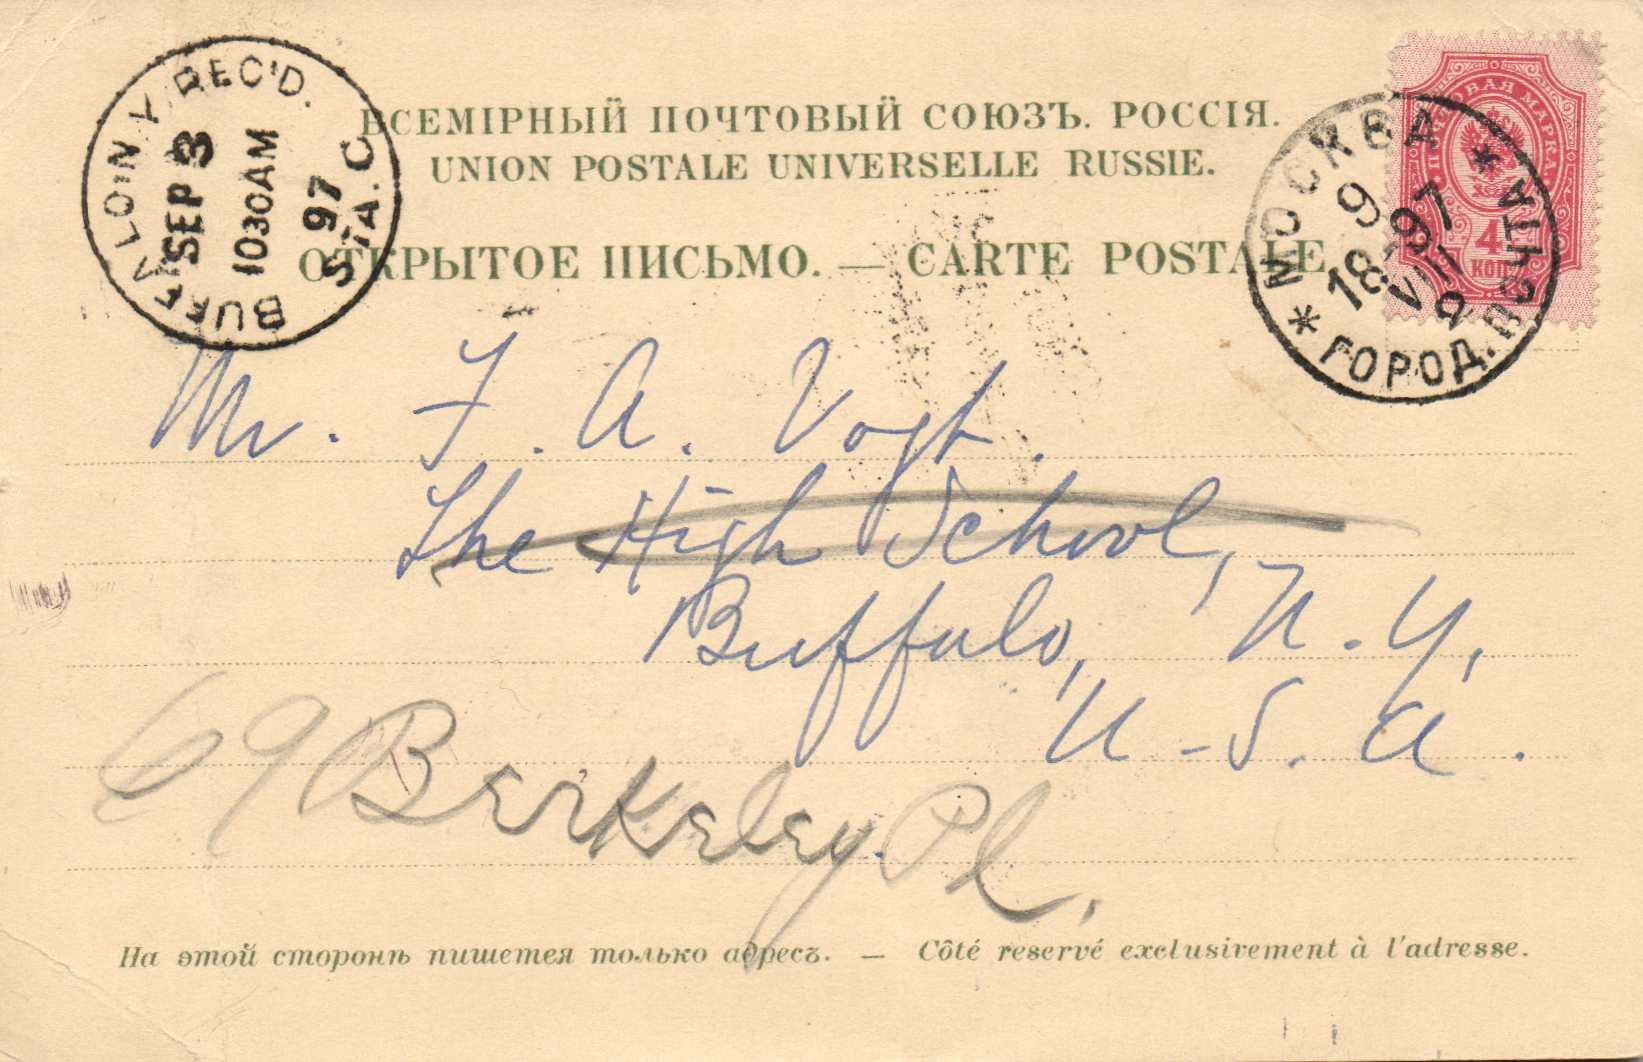 ВСЕМІРНЫЙ ПОЧТОВЫЙ СОЮЗЪ. РОССІЯ.
UNION POSTALE UNIVERSELLE RUSSIE.
ОТКРЫТОЕ ПИСЬМО. — CARTE POSTALE.
BUFFALO N.Y. REC'D.
SEP 3
1030AM
97
STA. C
ПОЧТОВАЯ МАРКА
4
КОП
МОСКВА
9
1897
VIII
ГОРОД. ПОЧТА
Mr. F. A. Vogt.
The High School,
Buffalo, N. Y,
U-S. A.
69 Berkeley Pl.
На этой сторонѣ пишется только адресъ. — Côté reservé exclusivement à l'adresse.